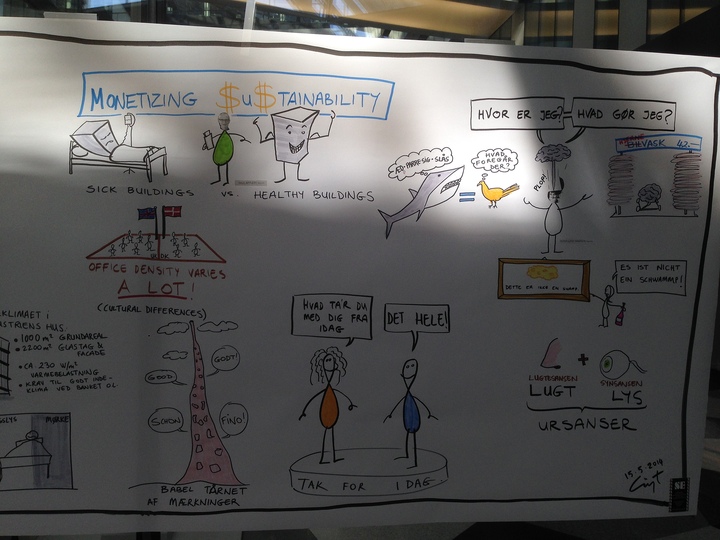 MONETIZING $U$TAINABILITY
SICK BUILDINGS
VS.
HEALTHY BUILDINGS
OFFICE DENSITY VARIES
A LOT!
(CULTURAL DIFFERENCES)
KLIMAET I
HUS.
• 1000 m² GRUNDAREAL
• 2200 m² GLASTAG &
FACADE
• CA. 230 W/m²
VARMEBELASTNING
• KRAV TIL GODT INDE-
KLIMA VED BANKET OL.
MØRKE
GODT!
GOOD
SCHÖN
FINO!
BABEL TÅRNET
AF MÆRKNINGER
HVAD TA'R DU
MED DIG FRA
IDAG
DET HELE!
TAK FOR I DAG
HVOR ER JEG?
HVAD GØR JEG?
ÆD · PARRE SIG · SLÅS
=
HVAD
FOREGÅR
DER?
PLOP!
VASK 42.-
DETTE ER IKKE EN SVAMP
ES IST NICHT
EIN SCHWAMM!
+
LUGTESANSEN
LUGT
SYNSANSEN
LYS
URSANSER
15.5.2014